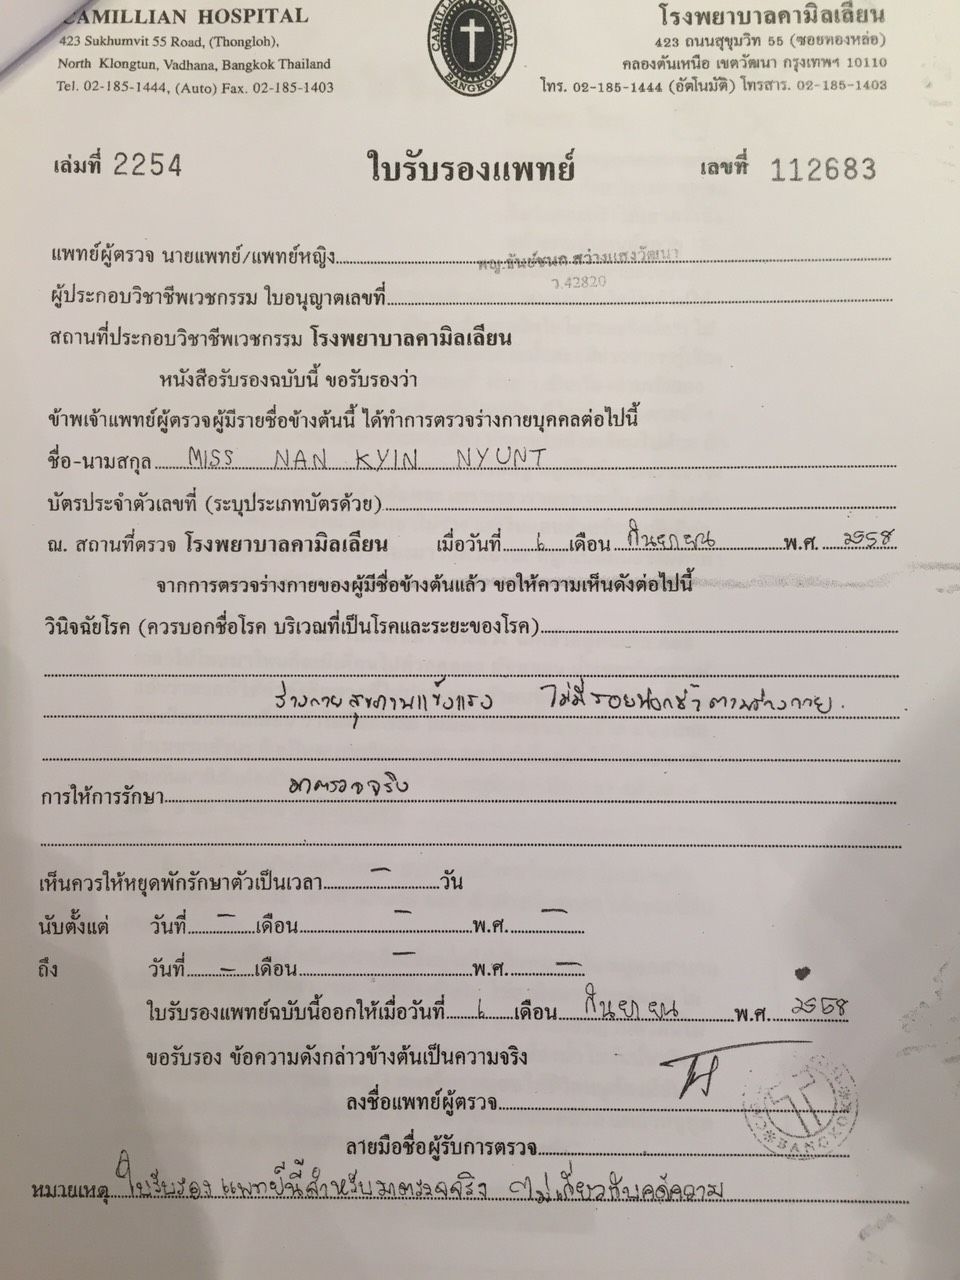 CAMILLIAN HOSPITAL
423 Sukhumvit 55 Road, (Thongloh),
North Klongtun, Vadhana, Bangkok Thailand
Tel. 02-185-1444, (Auto) Fax. 02-185-1403
CAMILLIAN HOSPITAL BANGKOK
โรงพยาบาลคามิลเลียน
423 ถนนสุขุมวิท 55 (ซอยทองหล่อ)
คลองตันเหนือ เขตวัฒนา กรุงเทพฯ 10110
โทร. 02-185-1444 (อัตโนมัติ) โทรสาร. 02-185-1403
เล่มที่ 2254 ใบรับรองแพทย์ เลขที่ 112683
แพทย์ผู้ตรวจ นายแพทย์/แพทย์หญิง พญ.ขันย์ชนก สว่างแสงวัฒนา
ว.42820
ผู้ประกอบวิชาชีพเวชกรรม ใบอนุญาตเลขที่
สถานที่ประกอบวิชาชีพเวชกรรม โรงพยาบาลคามิลเลียน
หนังสือรับรองฉบับนี้ ขอรับรองว่า
ข้าพเจ้าแพทย์ผู้ตรวจผู้มีรายชื่อข้างต้นนี้ ได้ทำการตรวจร่างกายบุคคลต่อไปนี้
ชื่อ-นามสกุล MISS NAN KYIN NYUNT
บัตรประจำตัวเลขที่ (ระบุประเภทบัตรด้วย)
ณ. สถานที่ตรวจ โรงพยาบาลคามิลเลียน เมื่อวันที่ 6 เดือน กันยายน พ.ศ. 2558
จากการตรวจร่างกายของผู้มีชื่อข้างต้นแล้ว ขอให้ความเห็นดังต่อไปนี้
วินิจฉัยโรค (ควรบอกชื่อโรค บริเวณที่เป็นโรคและระยะของโรค)
ร่างกายสุขภาพแข็งแรง ไม่มีรอยฟกช้ำตามร่างกาย.
การให้การรักษา มาตรวจจริง
เห็นควรให้หยุดพักรักษาตัวเป็นเวลา - วัน
นับตั้งแต่ วันที่ - เดือน - พ.ศ. -
ถึง วันที่ - เดือน - พ.ศ. -
ใบรับรองแพทย์ฉบับนี้ออกให้เมื่อวันที่ 6 เดือน กันยายน พ.ศ. 2558
ขอรับรอง ข้อความดังกล่าวข้างต้นเป็นความจริง
ลงชื่อแพทย์ผู้ตรวจ
BANGKOK
ลายมือชื่อผู้รับการตรวจ
หมายเหตุ ใบรับรองแพทย์นี้สำหรับมาตรวจจริง ไม่เกี่ยวกับคดีความ